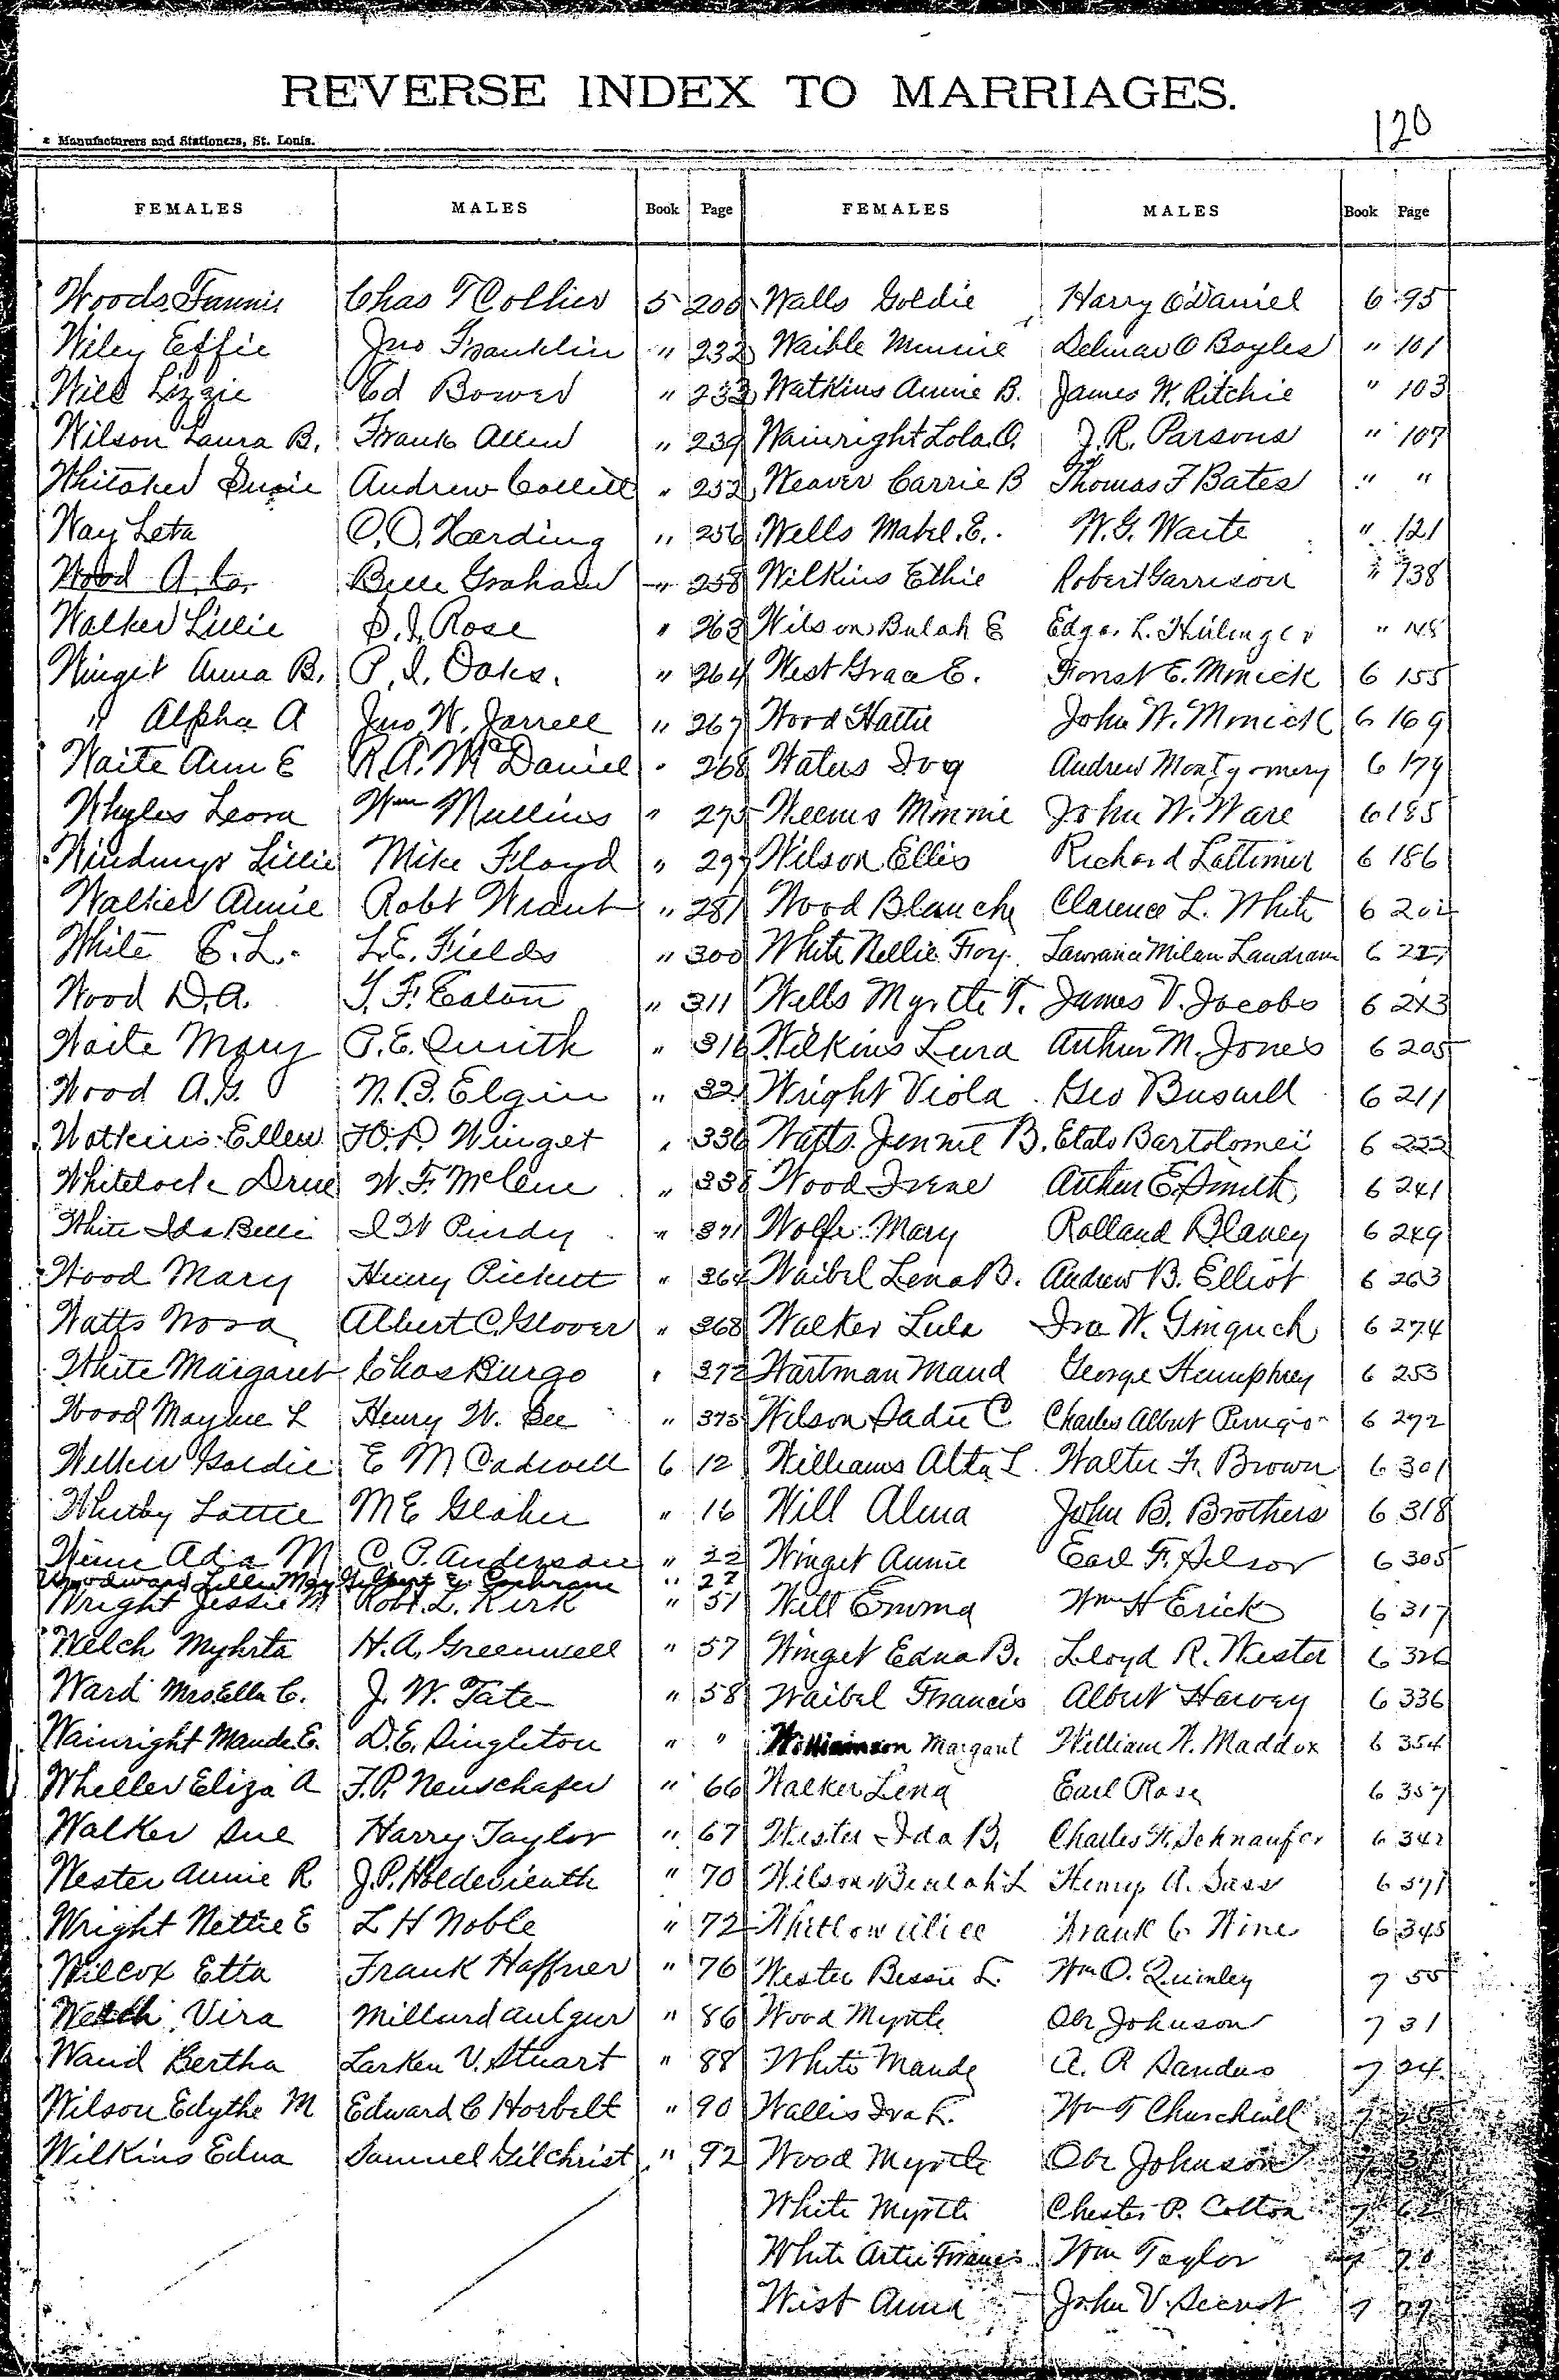 REVERSE INDEX TO MARRIAGES.
120
Manufacturers and Stationers, St. Louis.
FEMALES MALES Book Page FEMALES MALES Book Page
Woods Fannie Chas T Collier 5 200
Wiley Effie Jno Franklin " 232
Will Lizzie Ed Bower " 233
Wilson Laura B. Frank Allen " 239
Whitaker Susie Andrew Collett " 252
Way Leta O. O. Harding " 256
Wood A. C. Belle Graham " 258
Walker Lillie S. I. Rose " 263
Winget Anna B. P. I. Oaks. " 264
" Alpha A Jno W. Jarrell " 267
Waite Ann E R. A. McDaniel " 268
Whyles Leora Wm Mullins " 275
Lillie Mike Floyd " 297
Walker Annie Robt Wrant " 281
White C. L. L. E. Fields " 300
Wood D. A. T. F. Eaton " 311
Waite Mary P. E. Smith " 316
Wood A. G. N. B. Elgin " 321
Watkins Ellen H. D Winget " 336
Whitelock Drue W. F. McClure " 338
White Ida Belle I W Purdy " 371
Wood Mary Henry Pickett " 364
Watts Nora Albert C. Glover " 368
White Margaret Chas Burgo " 372
Wood Mayme L Henry W. Bee " 375
Goldie E M Cadwell 6 12
Whitby Lottie M E " 16
Winn Ada M C. P. Anderson " 22
Woodward Lillie May Gilbert E. Cochrane " 27
Wright Jessie M Robt. L. Kirk " 51
Welch Myhrta H. A. Greenwell " 57
Ward Mrs. Ella C. J. W. Tate " 58
Wainright Maude E. D. E. Singleton " "
Wheller Eliza A F. P. Neuschafer " 66
Walker Sue Harry Taylor " 67
Wester Annie R J. P. Holderieath " 70
Wright Nettie E L H Noble " 72
Wilcox Etta Frank Haffner " 76
Welch Vira Millard Aulgur " 86
Wand Bertha Larken V. Stuart " 88
Wilson Edythe M Edward C Horbelt " 90
Wilkins Edna Samuel Gilchrist " 92
Walls Goldie Harry O'Daniel 6 95
Waible Minnie Delmar O Boyles " 101
Watkins Annie B. James W. Ritchie " 103
Wainright Lola O. J. R. Parsons " 107
Weaver Carrie B Thomas F Bates " "
Wells Mabel. E. W. G. Waite " 121
Wilkins Ethie Robert Garrison " 138
Wilson Bulah E Edgar L. " 148
West Grace E. Forrest E. Minick 6 155
Wood Hattie John W. Minick 6 169
Waters Iva Andrew Montgomery 6 179
Weems Minnie John W. Ware 6 185
Wilson Ellis Richard Lattimer 6 186
Wood Blanche Clarence L. White 6 202
White Nellie Foy Lawrance Milam Landram 6
Wells Myrtle T. James V. Jacobs 6 243
Wilkins Lura Arthur M. Jones 6 205
Wright Viola Geo Buswell 6 211
Watts Jennie B. Etalo Bartolomei 6 222
Wood Irene Arthur E. Smith 6 241
Wolfe Mary Rolland Blaney 6 249
Waibel Lena B. Andrew B. Elliot 6 263
Walker Lula Ira W. Gingrich 6 274
Wartman Maud George Humphrey 6 253
Wilson Sadie C Charles Albert 6 272
Williams Alta L. Walter F. Brown 6 301
Will Alma John B. Brothers 6 318
Winget Annie Earl F. Silsor 6 305
Will Emma Wm H Erick 6 317
Winget Edna B. Lloyd R. Wester 6 326
Waibel Francis Albert Harvey 6 336
Williamson Margaret William W. Maddox 6 354
Walker Lena Earl Rose 6 357
Wester Ida B. Charles H. Schnaufer 6 342
Wilson Beulah L Henry A. Sass 6 371
Whitlow Alice Frank C. Wine 6 345
Wester Bessie L. Wm O. Quinley 7 55
Wood Myrtle Obe Johnson 7 31
White Maude A. R Sanders 7 24
Wallis Iva F. Wm T Churchill 7
Wood Myrtle Obe Johnson 7 31
White Myrtle Chester P. Colton 7 62
White Artie Francis Wm Taylor 7 70
West Anna John V. Secrest 7 77